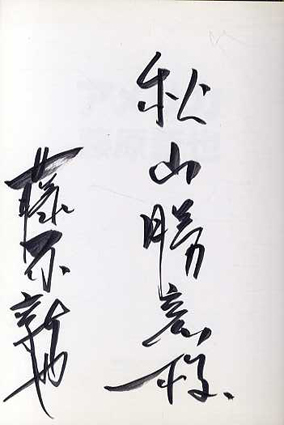 秋山勝彦様
藤原新也